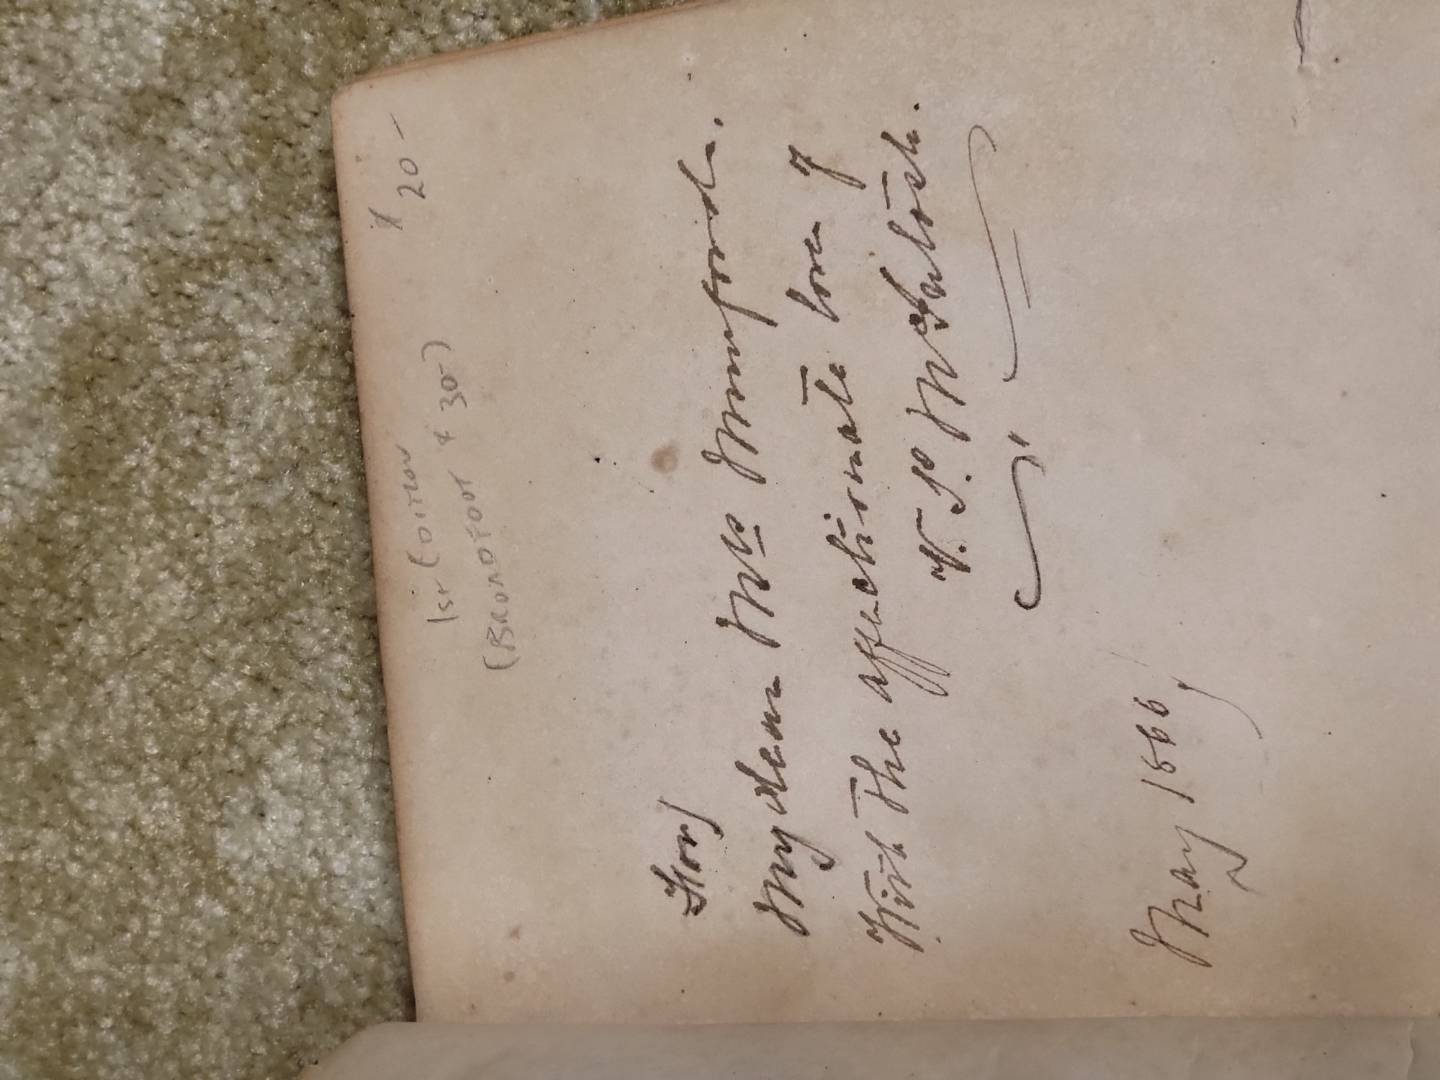 20-
1st EDITION
(BROADFOOT * 30-)
For/
My dear Mrs Mumford.
With the affectionate love of
McIntosh.
May 1866,